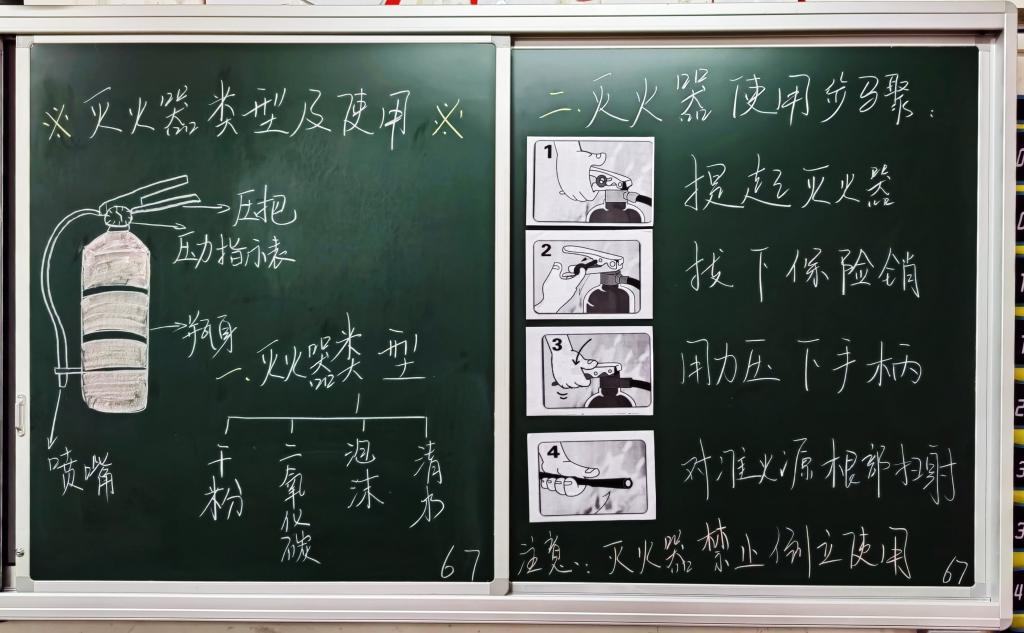 ※ 灭火器类型及使用 ※
压把
压力指示表
瓶身
喷嘴
一.灭火器类型
干粉
二氧化碳
泡沫
清水
67
二.灭火器使用步骤:
1
提起灭火器
2
拔下保险销
3
用力压下手柄
4
对准火源根部扫射
注意:灭火器禁止倒立使用
67